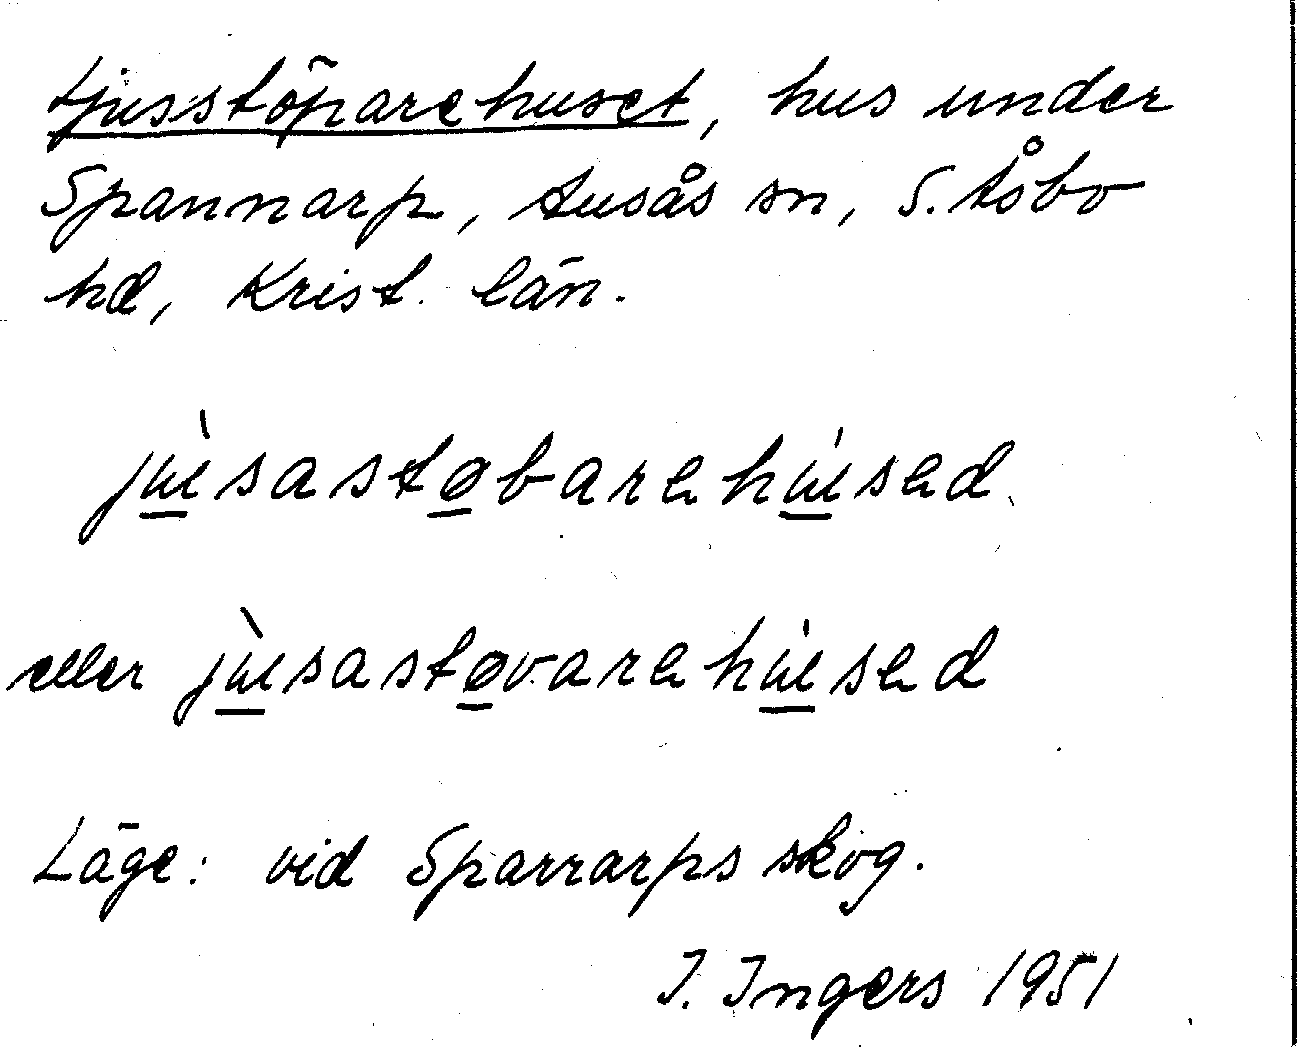 Ljusstöparehuset, hus under
Spannarp, Ausås sn, S. Åsbo
hd, Krist. län.
jùsastøbarehúsed
eller jùsastøvarehúsed
Läge: vid Sparrarps skog.
I. Ingers 1951